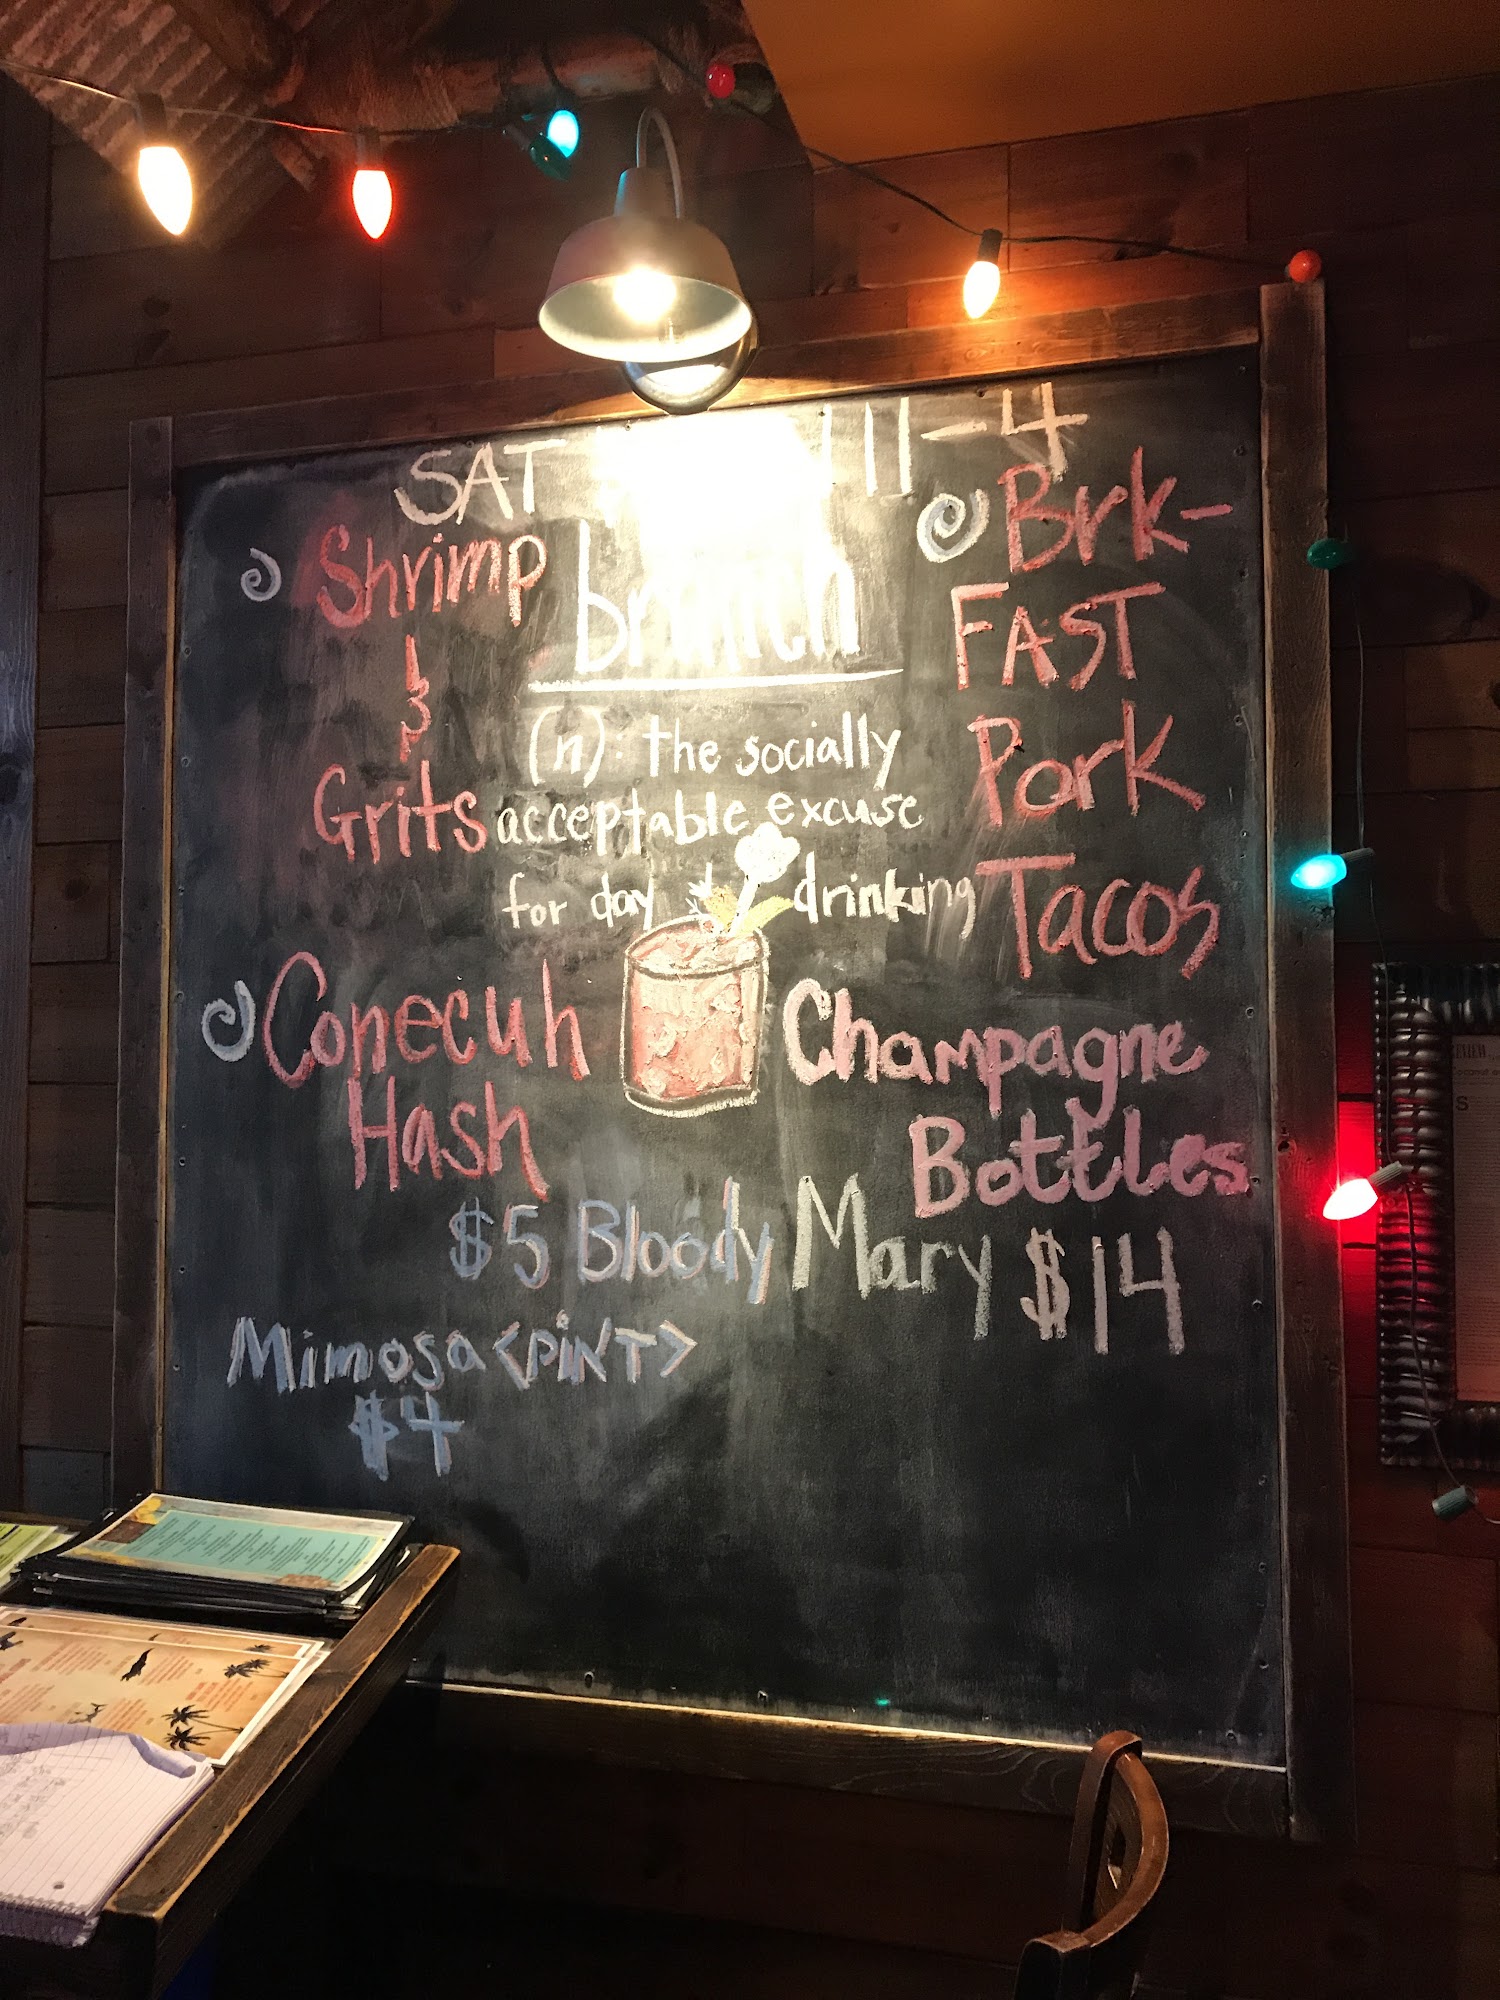 SAT
11-4
brunch
(n): the socially
acceptable excuse
for day drinking
Shrimp
&
Grits
Conecuh
Hash
Brk-
FAST
Pork
Tacos
Champagne
Bottles
$14
$5 Bloody Mary
Mimosa <PiNT>
$4